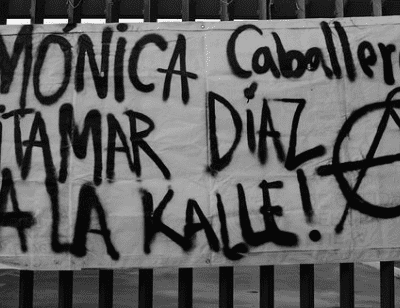 MÓNICA Caballer
iTAMAR DíAZ
A LA KALLE!